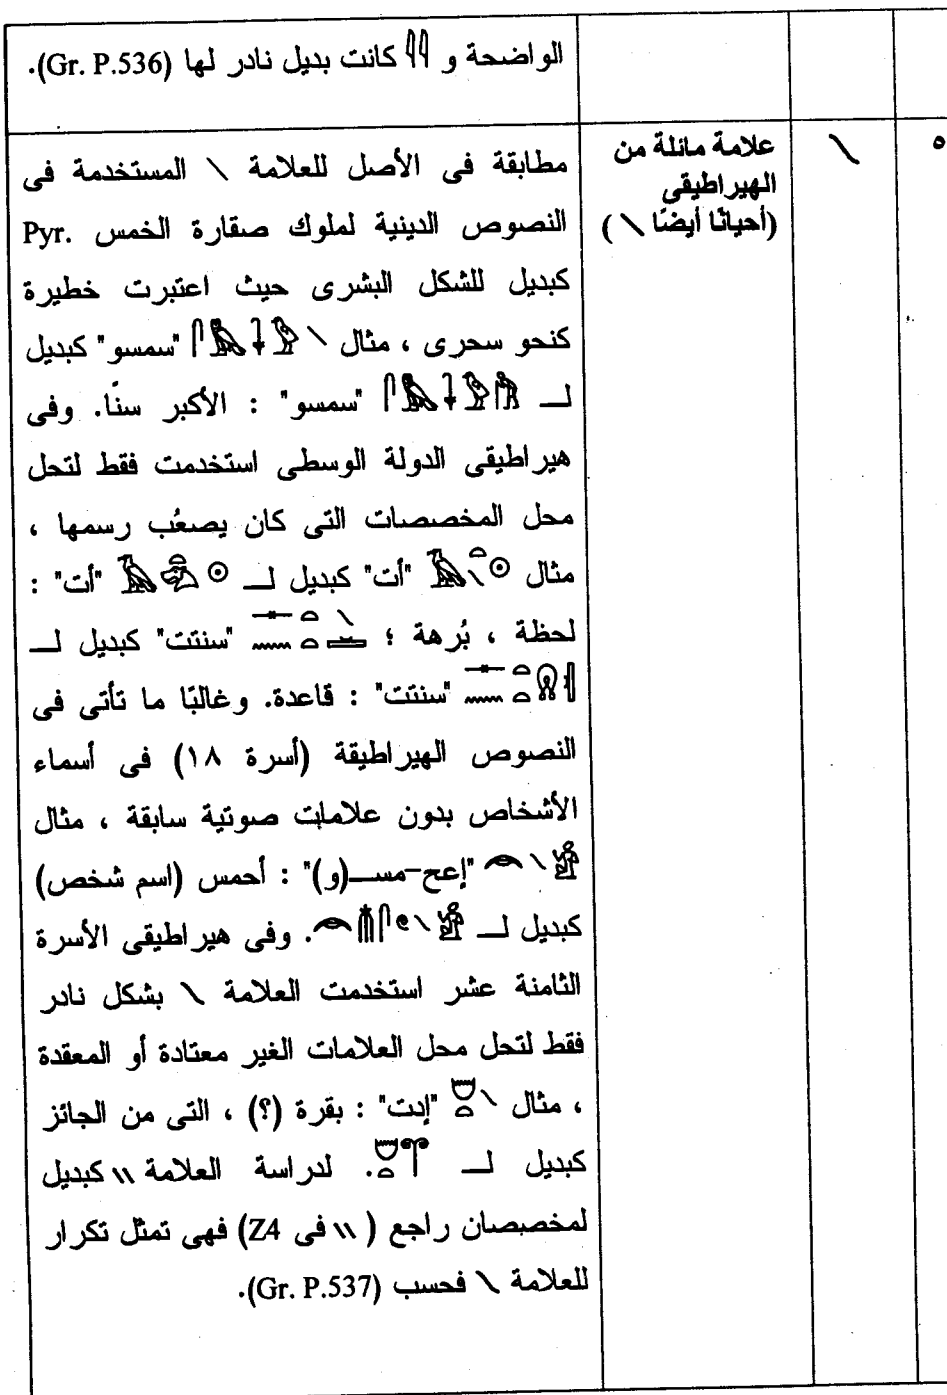 الواضحة و 𓇌 كانت بديل نادر لها (Gr. P.536).
٥
\
علامة مائلة من
الهيراطيقى
(أحيانًا أيضًا \ )
مطابقة فى الأصل للعلامة \ المستخدمة فى
النصوص الدينية لملوك صقارة الخمس Pyr.
كبديل للشكل البشرى حيث اعتبرت خطيرة
كنحو سحرى ، مثال \ "سمسو" كبديل
لــ "سمسو" : الأكبر سنًا. وفى
هيراطيقى الدولة الوسطى استخدمت فقط لتحل
محل المخصصات التى كان يصعُب رسمها ،
مثال "أت" كبديل لــ "أت" :
لحظة ، بُرهة ؛ "سنتت" كبديل لــ
"سنتت" : قاعدة. وغالبًا ما تأتى فى
النصوص الهيراطيقة (أسرة ١٨) فى أسماء
الأشخاص بدون علامات صوتية سابقة ، مثال
"إعح-مســ(و)" : أحمس (اسم شخص)
كبديل لــ . وفى هيراطيقى الأسرة
الثامنة عشر استخدمت العلامة \ بشكل نادر
فقط لتحل محل العلامات الغير معتادة أو المعقدة
، مثال "إدت" : بقرة (؟) ، التى من الجائز
كبديل لــ . لدراسة العلامة \\ كبديل
لمخصصان راجع ( \\ فى Z4) فهى تمثل تكرار
للعلامة \ فحسب (Gr. P.537).